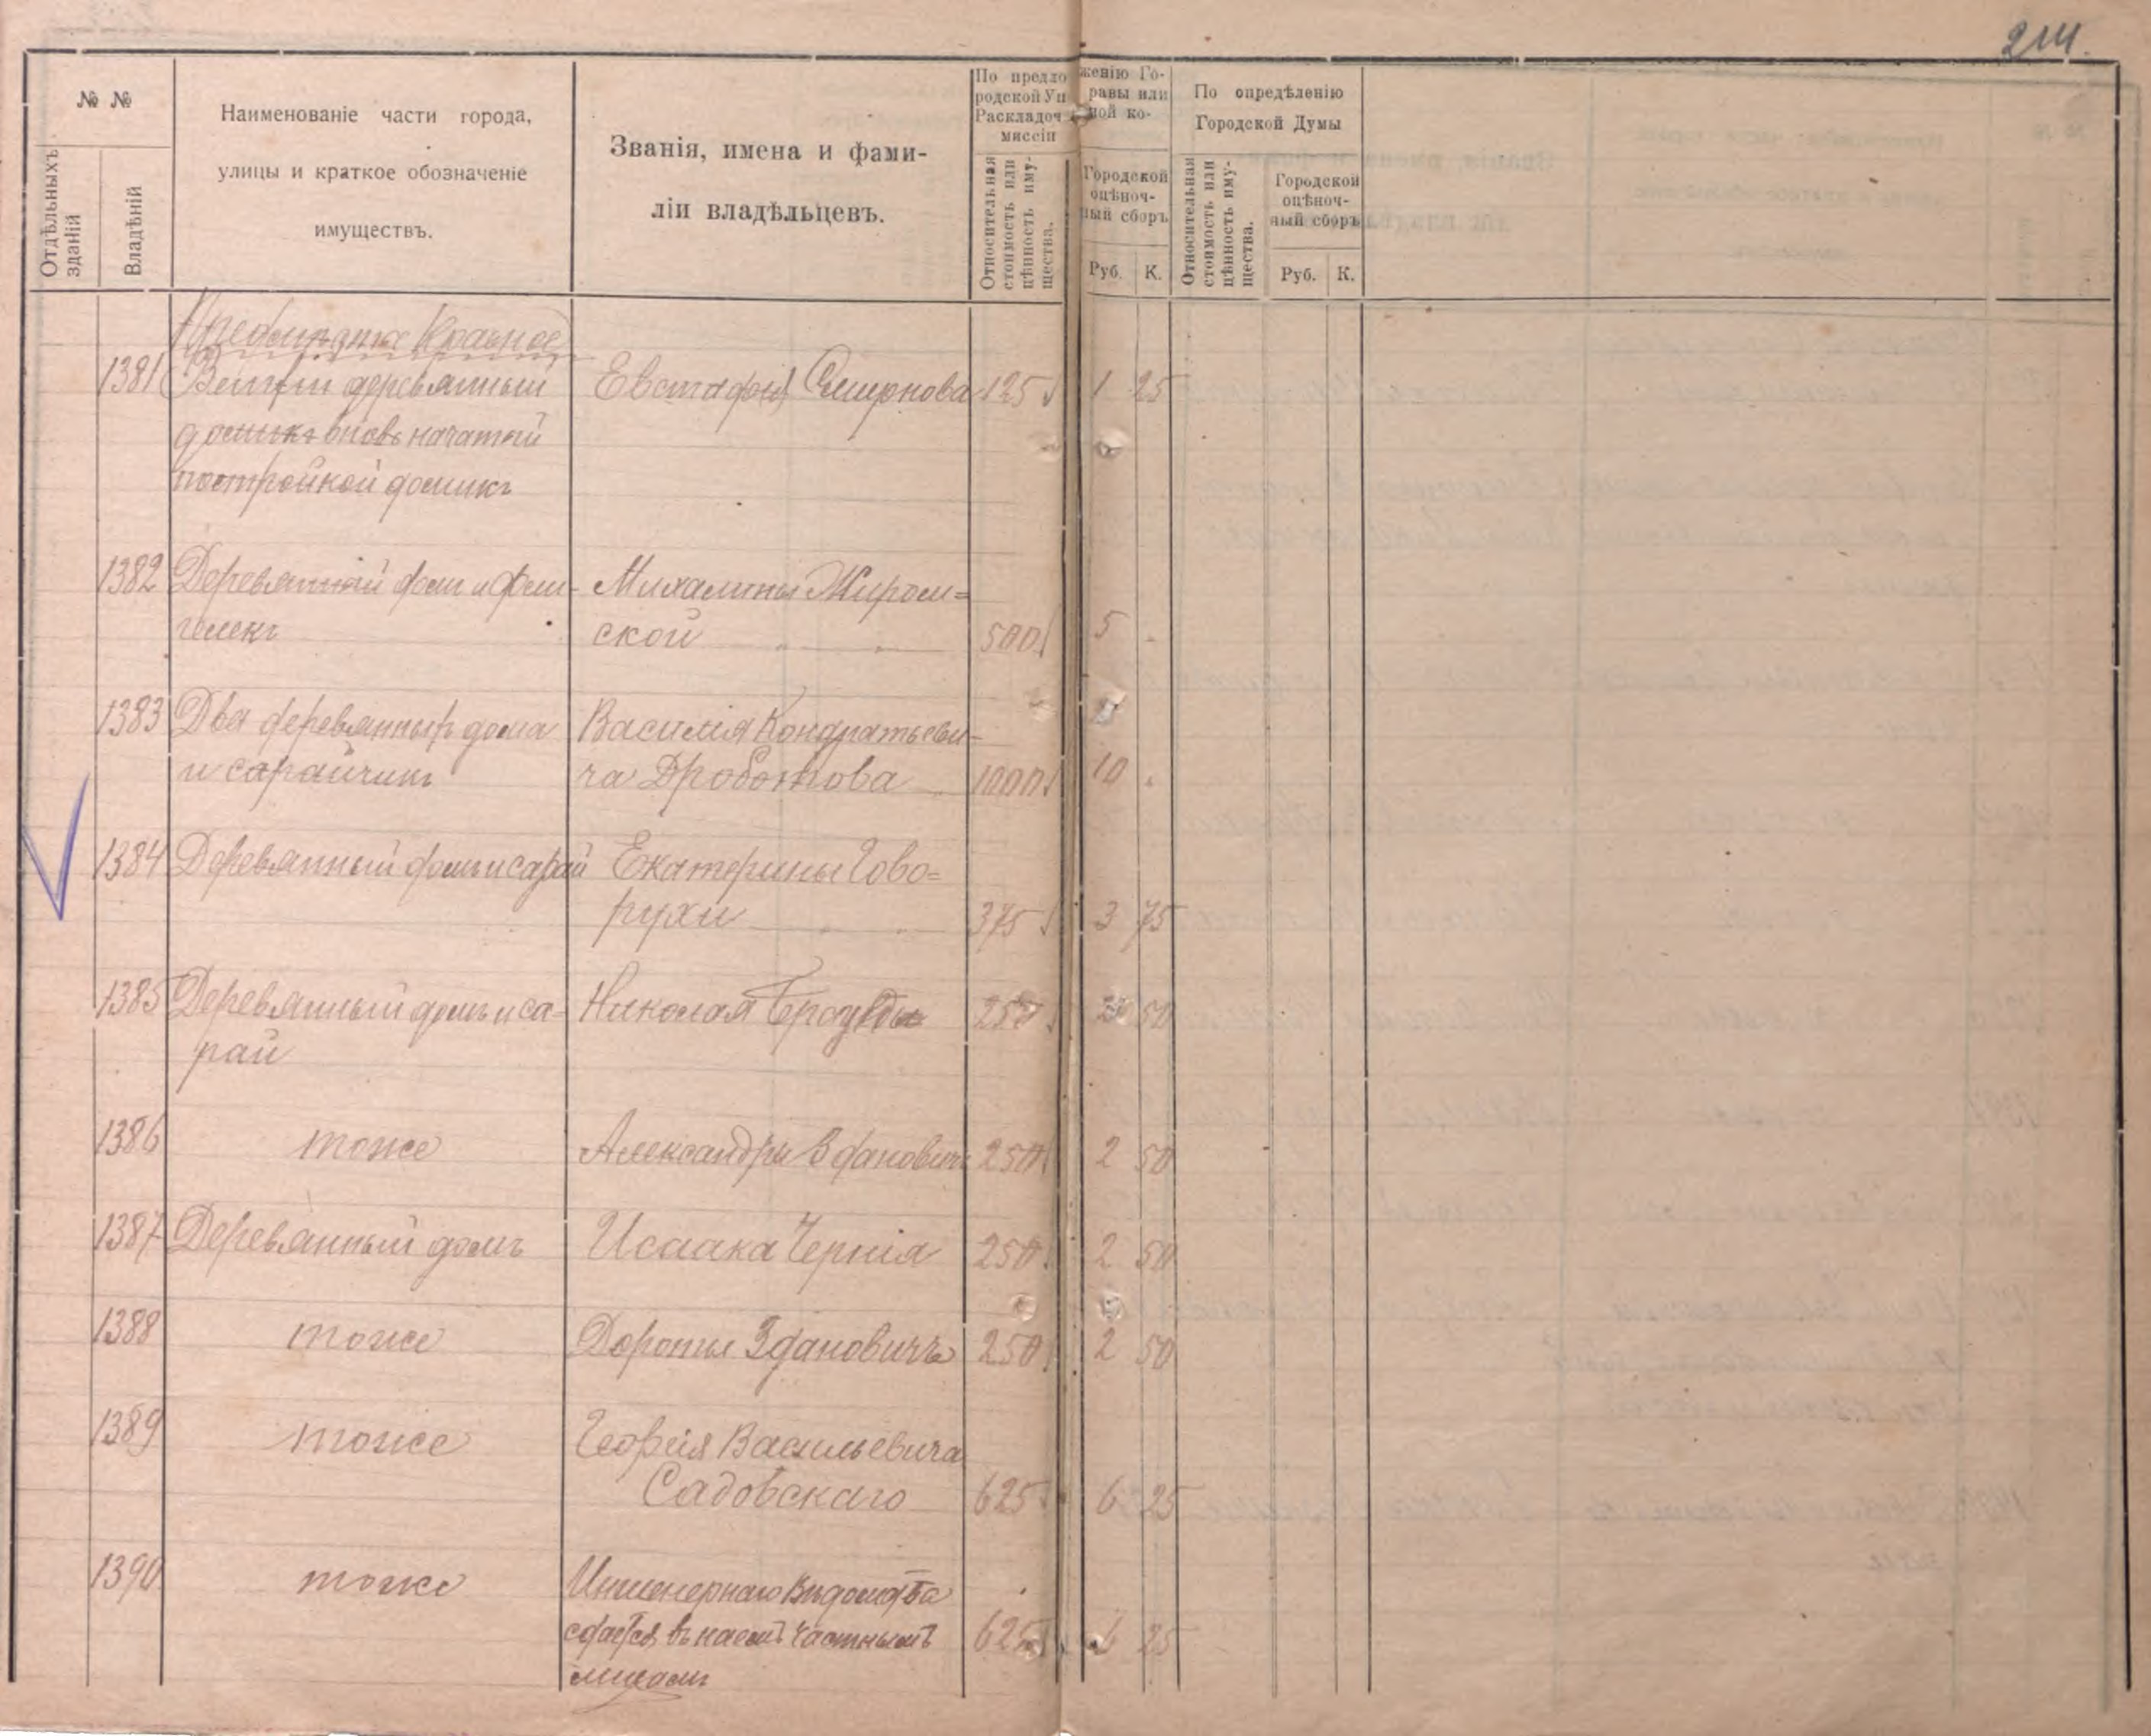 214.
№ №
Отдѣльныхъ зданій
Владѣній
Наименованіе части города,
улицы и краткое обозначеніе
имуществъ.
Званія, имена и фами-
ліи владѣльцевъ.
По предло женію Го-
родской Уп равы или
Раскладоч ной ко-
миссіи
Относительная
стоимость или
цѣнность иму-
щества.
Городской
оцѣноч-
ный сборъ
Руб. К.
По опредѣленію
Городской Думы
Относительная
стоимость или
цѣнность иму-
щества.
Городской
оцѣноч-
ный сборъ
Руб. К.
1381 деревянный Евстафія Смирнова 125 1 25
домикъ вновь начатый
постройкой домикъ
1382 Деревянный домъ и фли- Михалины Жиром=
гелекъ ской 500 5 -
1383 Два деревянныхъ дома Василія Кондратьеви-
и сарайчикъ ча Дроботова 1000 10 .
1384 Деревянный домъ и сарай Екатерины Гово=
рухи 375 3 75
1385 Деревянный домъ и са- Николая 250 50
рай
1386 тоже Александры Здановичъ 250 2 50
1387 Деревянный домъ Исаака Чернія 250 2 50
1388 тоже Здановичъ 250 2 50
1389 тоже Георгія Васильевича
Садовскаго 625 6 25
1390 тоже Инженернаго Вѣдомства
сдается въ наемъ частнымъ 625 6 25
лицамъ